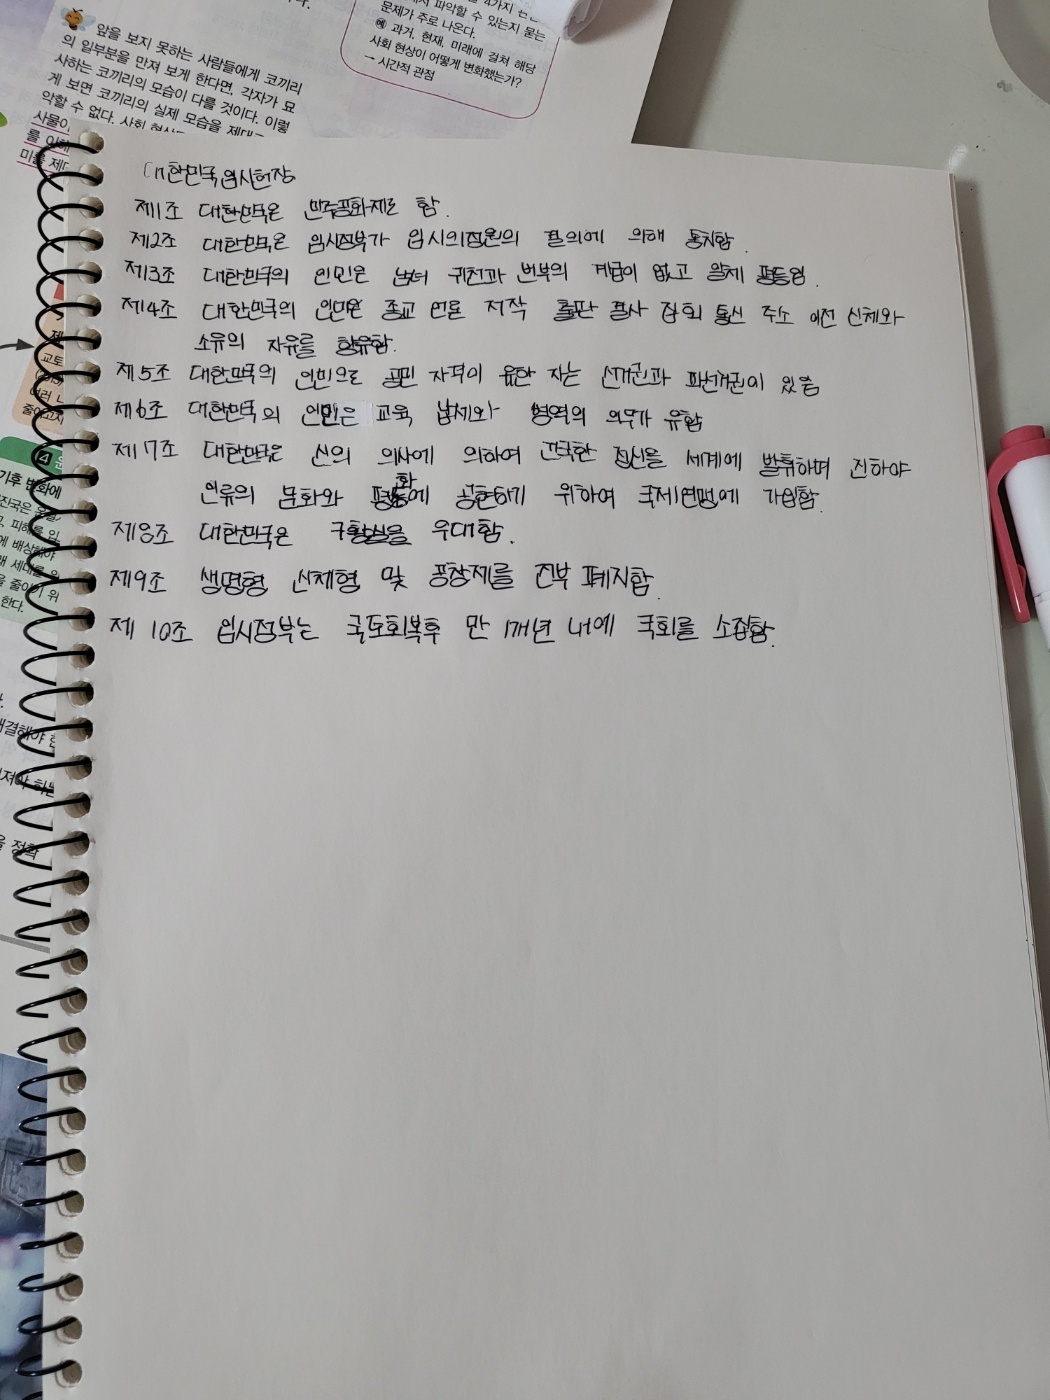 앞을 보지 못하는 사람들에게 코끼리
의 일부분을 만져 보게 한다면, 각자가 묘
사하는 코끼리의 모습이 다를 것이다. 이렇
게 보면 코끼리의 실제 모습을 제대로
악할 수 없다. 사회
사물이
미를 제대
에서 파악할 수 있는지 묻는
문제가 주로 나온다.
예 과거, 현재, 미래에 걸쳐 해당
사회 현상이 어떻게 변화했는가?
→ 시간적 관점
대한민국 임시헌장
제1조 대한민국은 민주공화제로 함.
제2조 대한민국은 임시정부가 임시의정원의 결의에 의해 통치함.
제3조 대한민국의 인민은 남녀 귀천과 빈부의 계급이 없고 일체 평등임.
제4조 대한민국의 인민은 종교 언론 저작 출판 결사 집회 통신 주소 이전 신체와
소유의 자유를 향유함.
제5조 대한민국의 인민으로 공민 자격이 유한 자는 선거권과 피선거권이 있음
제6조 대한민국의 인민은 교육 납세와 병역의 의무가 유함
제7조 대한민국은 신의 의사에 의하여 건국한 정신을 세계에 발휘하며 진하야
인류의 문화와 평화에 공헌하기 위하여 국제연맹에 가입함.
제8조 대한민국은 구황실을 우대함.
제9조 생명형 신체형 및 공창제를 전부 폐지함.
제10조 임시정부는 국토회복후 만 1개년 내에 국회를 소집함.
기후 변화에
한다.